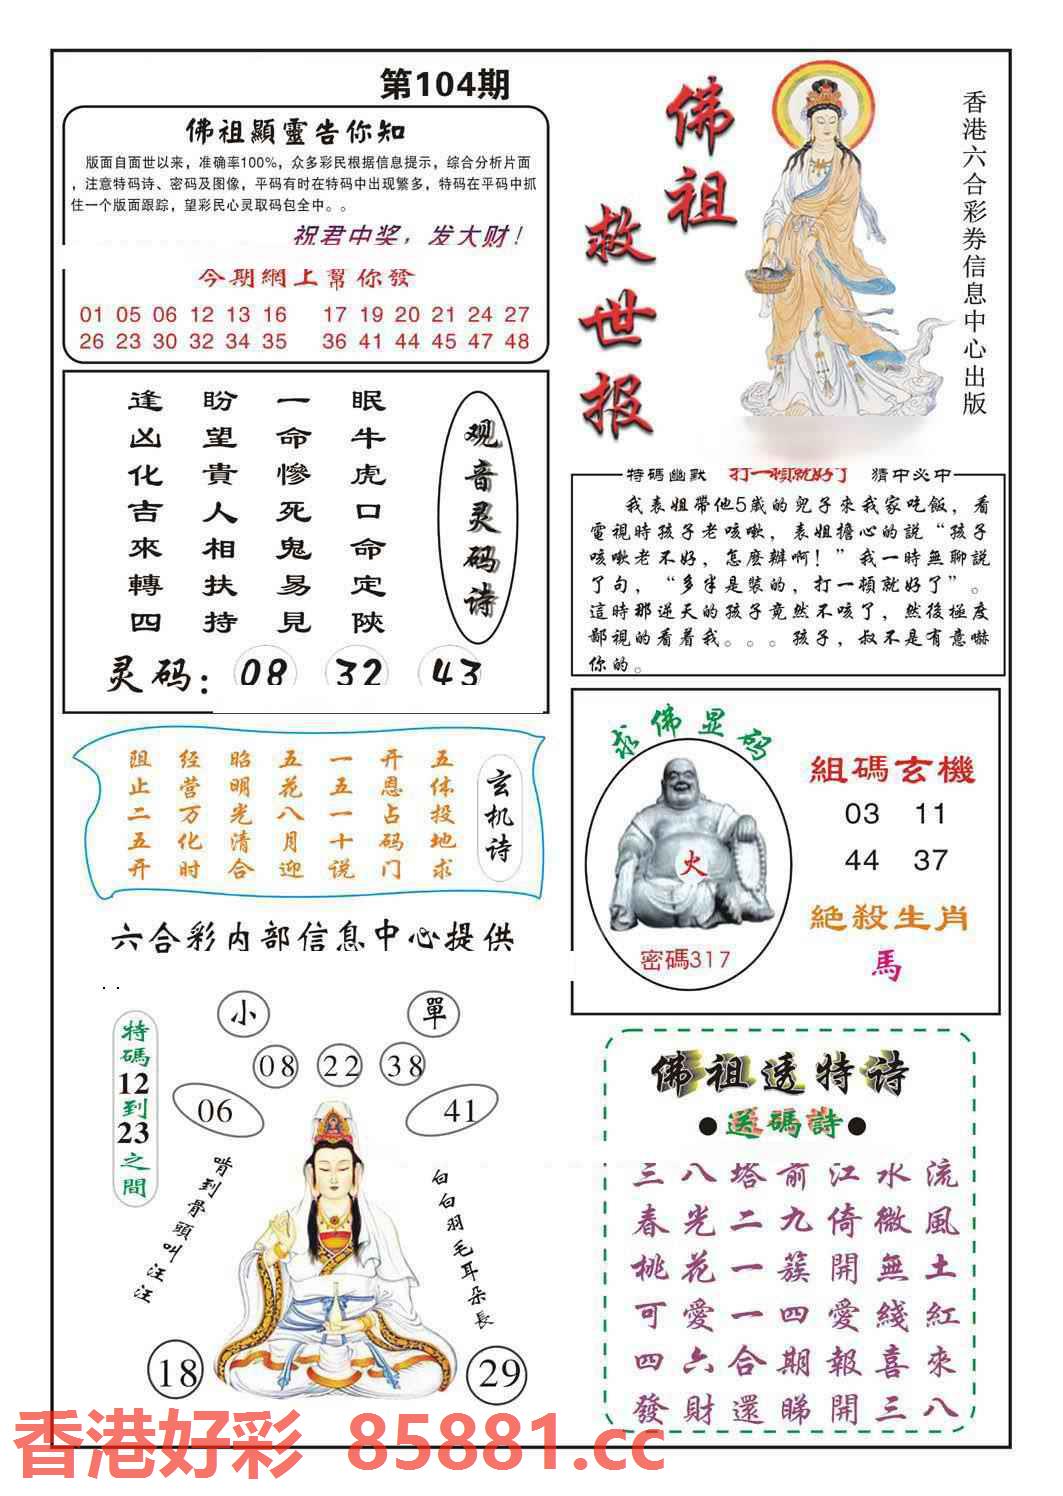 第104期
佛祖顯靈告你知
版面自面世以来，准确率100%，众多彩民根据信息提示，综合分析片面
，注意特码诗、密码及图像，平码有时在特码中出现繁多，特码在平码中抓
住一个版面跟踪，望彩民心灵取码包全中。。
祝君中奖，发大财！
今期網上幫你發
01 05 06 12 13 16 17 19 20 21 24 27
26 23 30 32 34 35 36 41 44 45 47 48
佛祖
救世报
香港六合彩券信息中心出版
观音灵码诗
眠牛虎口命定陝
一命慘死鬼易見
盼望貴人相扶持
逢凶化吉來轉四
灵码：08 32 43
特碼幽默 打一頓就好了 猜中必中
我表姐帶他5歲的兒子來我家吃飯，看
電視時孩子老咳嗽，表姐擔心的説“孩子
咳嗽老不好，怎麽辦啊！”我一時無聊説
了句，“多半是裝的，打一頓就好了”。
這時那逆天的孩子竟然不咳了，然後極度
鄙視的看着我。。。孩子，叔不是有意嚇
你的。
玄机诗
五体投地求
开恩占码门
一五一十说
五花八月迎
昭明光清合
经营万化时
阻止二五开
求佛显码
火
密碼317
組碼玄機
03 11
44 37
絶殺生肖
馬
六合彩内部信息中心提供
特碼12到23之間
小
單
08 22 38
06
41
啃到骨頭叫汪汪
白白羽毛耳朵長
18
29
佛祖透特诗
●送碼詩●
三八塔前江水流
春光二九倚微風
桃花一簇開無土
可愛一四愛綫紅
四六合期報喜來
發財還睇開三八
香港好彩 85881.cc